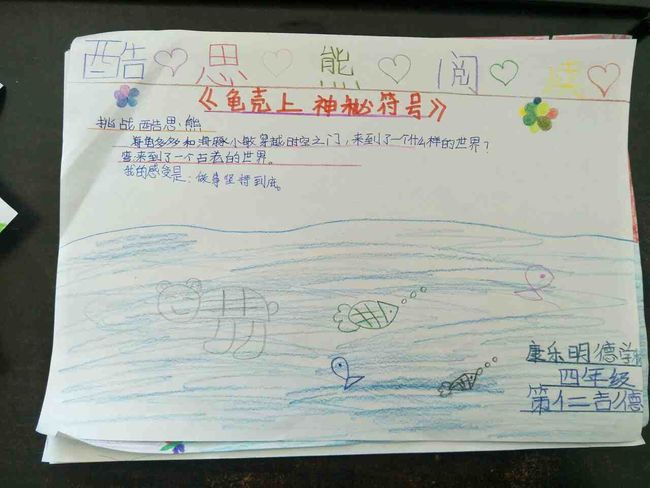 酷思熊阅读
《龟壳上神秘符号》
挑战酷思熊
多多和滑豚小敏穿越时空之门,来到了一个什么样的世界?
来到了一个古老的世界。
我的感受是:做事坚持到底。
康乐明德学
四年级
第仁吉德